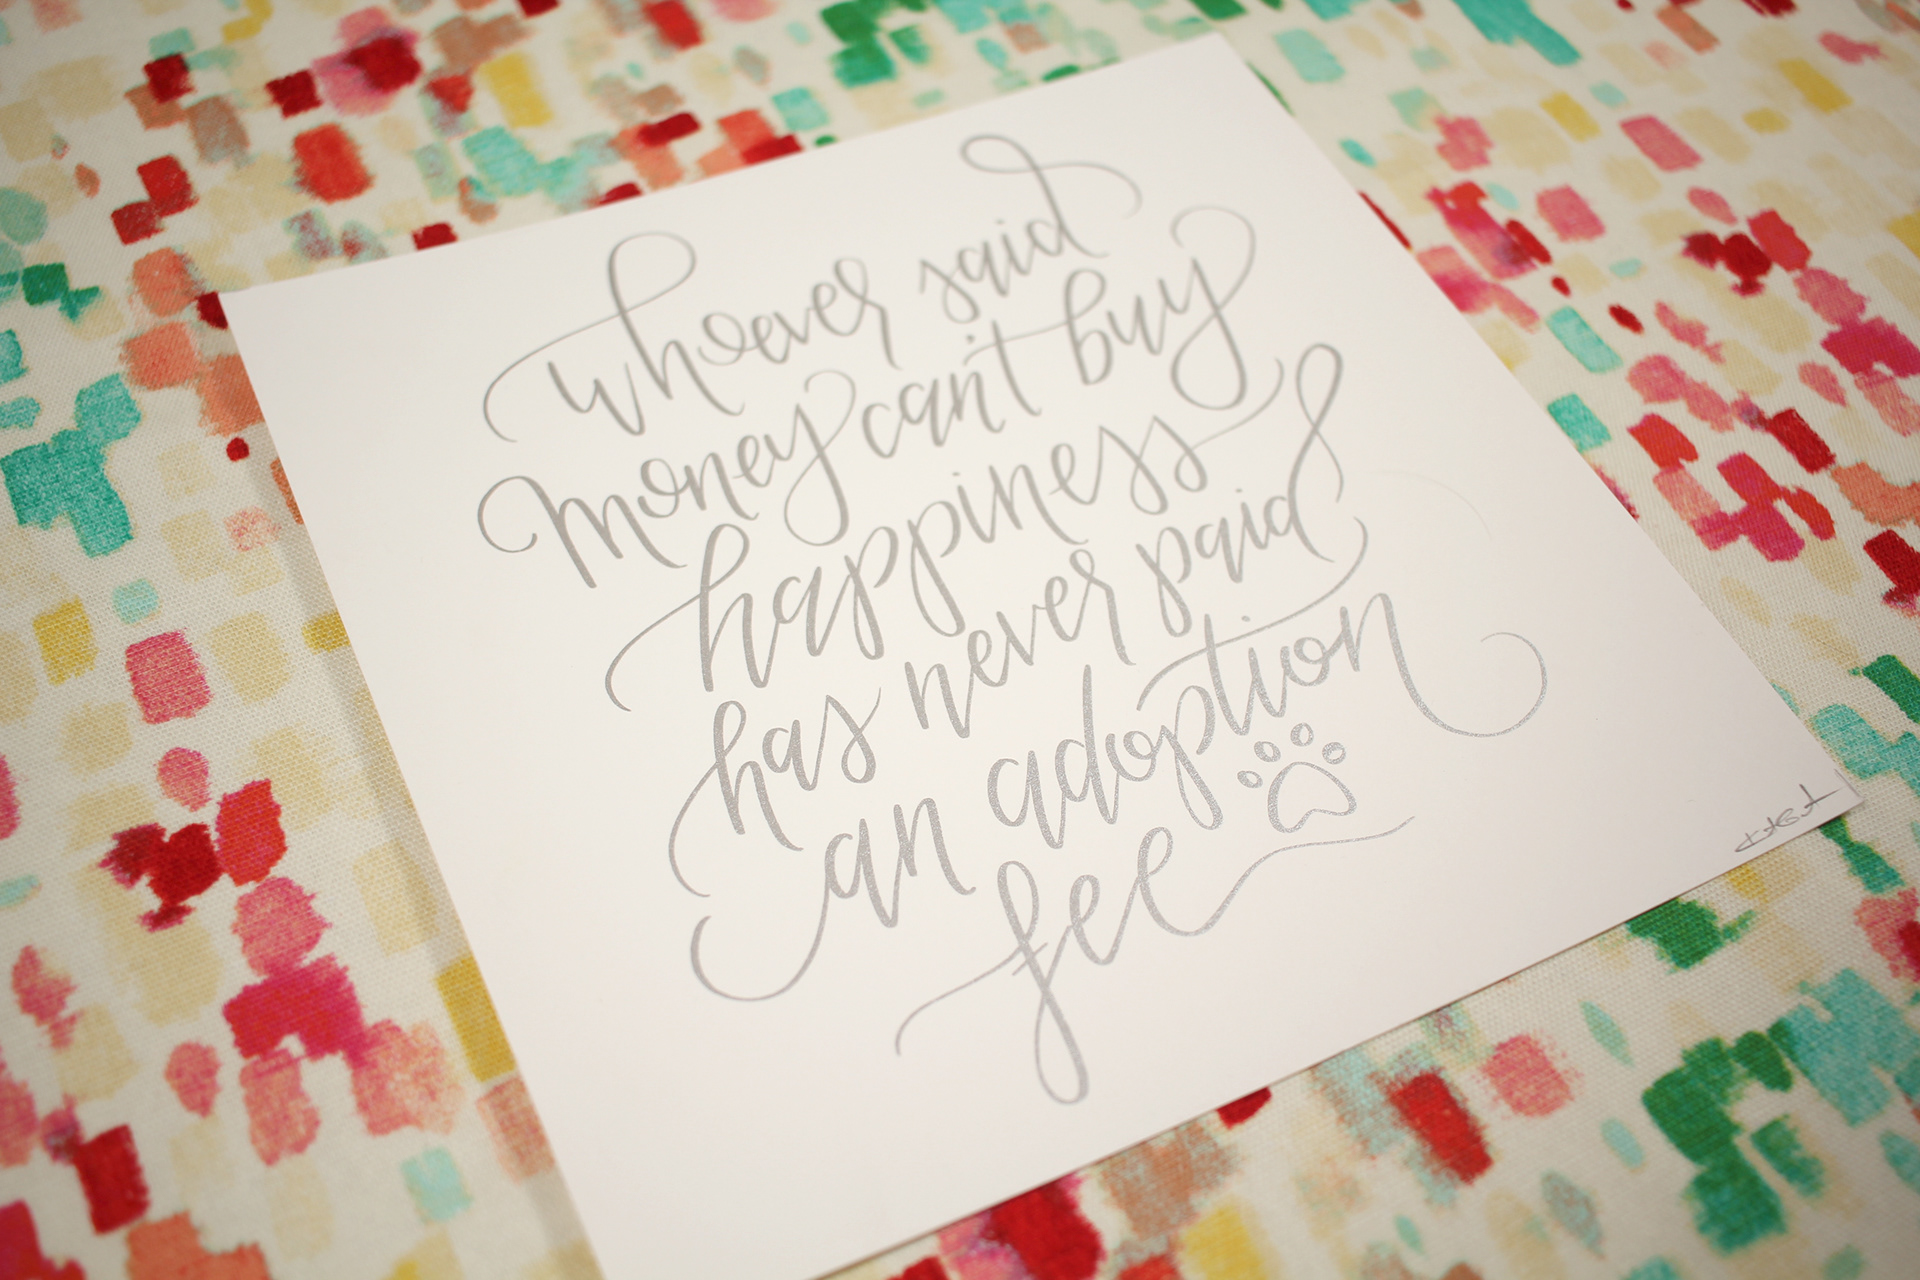 whoever said
money can't buy
happiness
has never paid
an adoption
fee